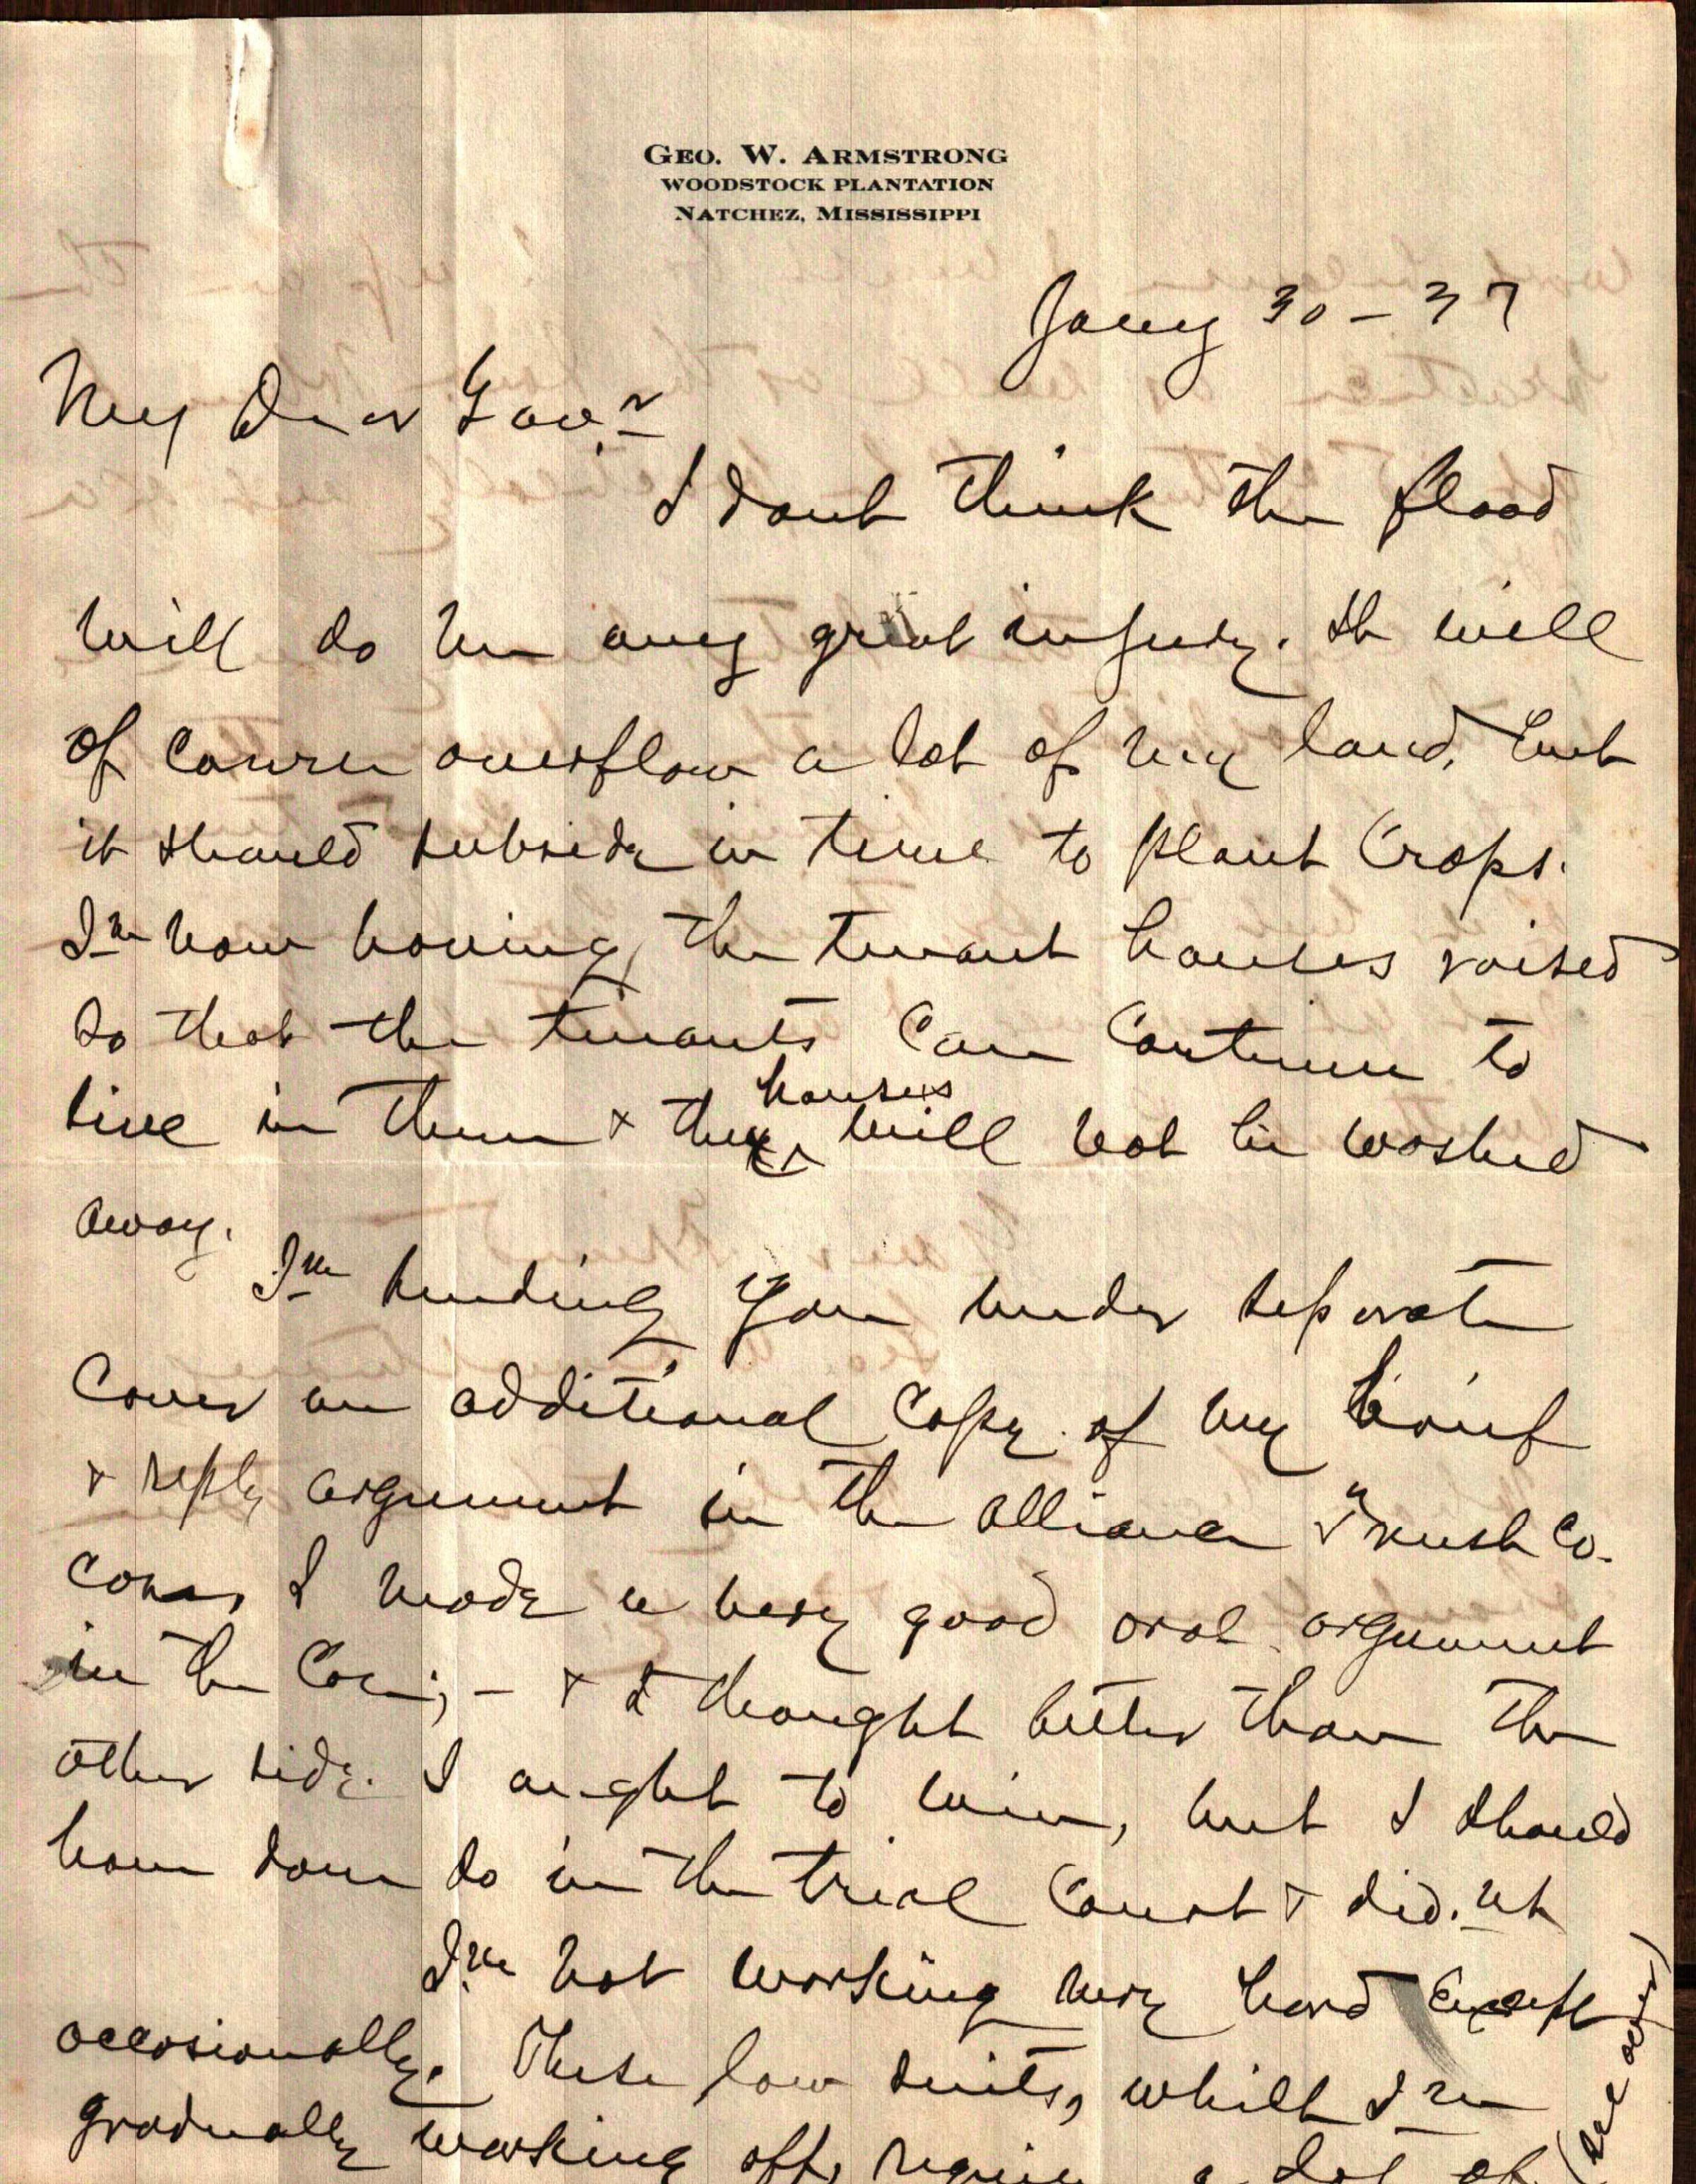 GEO. W. ARMSTRONG
WOODSTOCK PLANTATION
NATCHEZ, MISSISSIPPI
Jany 30 - 37
My Dear Gov.r
I dont think the flood
will do me any great injury. It will
of course overflow a lot of my land, but
it should subside in time to plant crops.
I'm now having the tenant houses raised
so that the tenants can continue to
houses
live in them & the will not be washed
away.
I'm sending you under separate
cover an additional copy of my brief
& reply argument in the Alliance Trust Co.
case, I made a very good oral argument
in the case; - & I thought better than the
other side. I ought to win, but I should
have done so in the trial court & did.nt
I'm not working very hard except
occasionally. These law suits, whilst I'm
gradually working off, require a lot of
(see over)